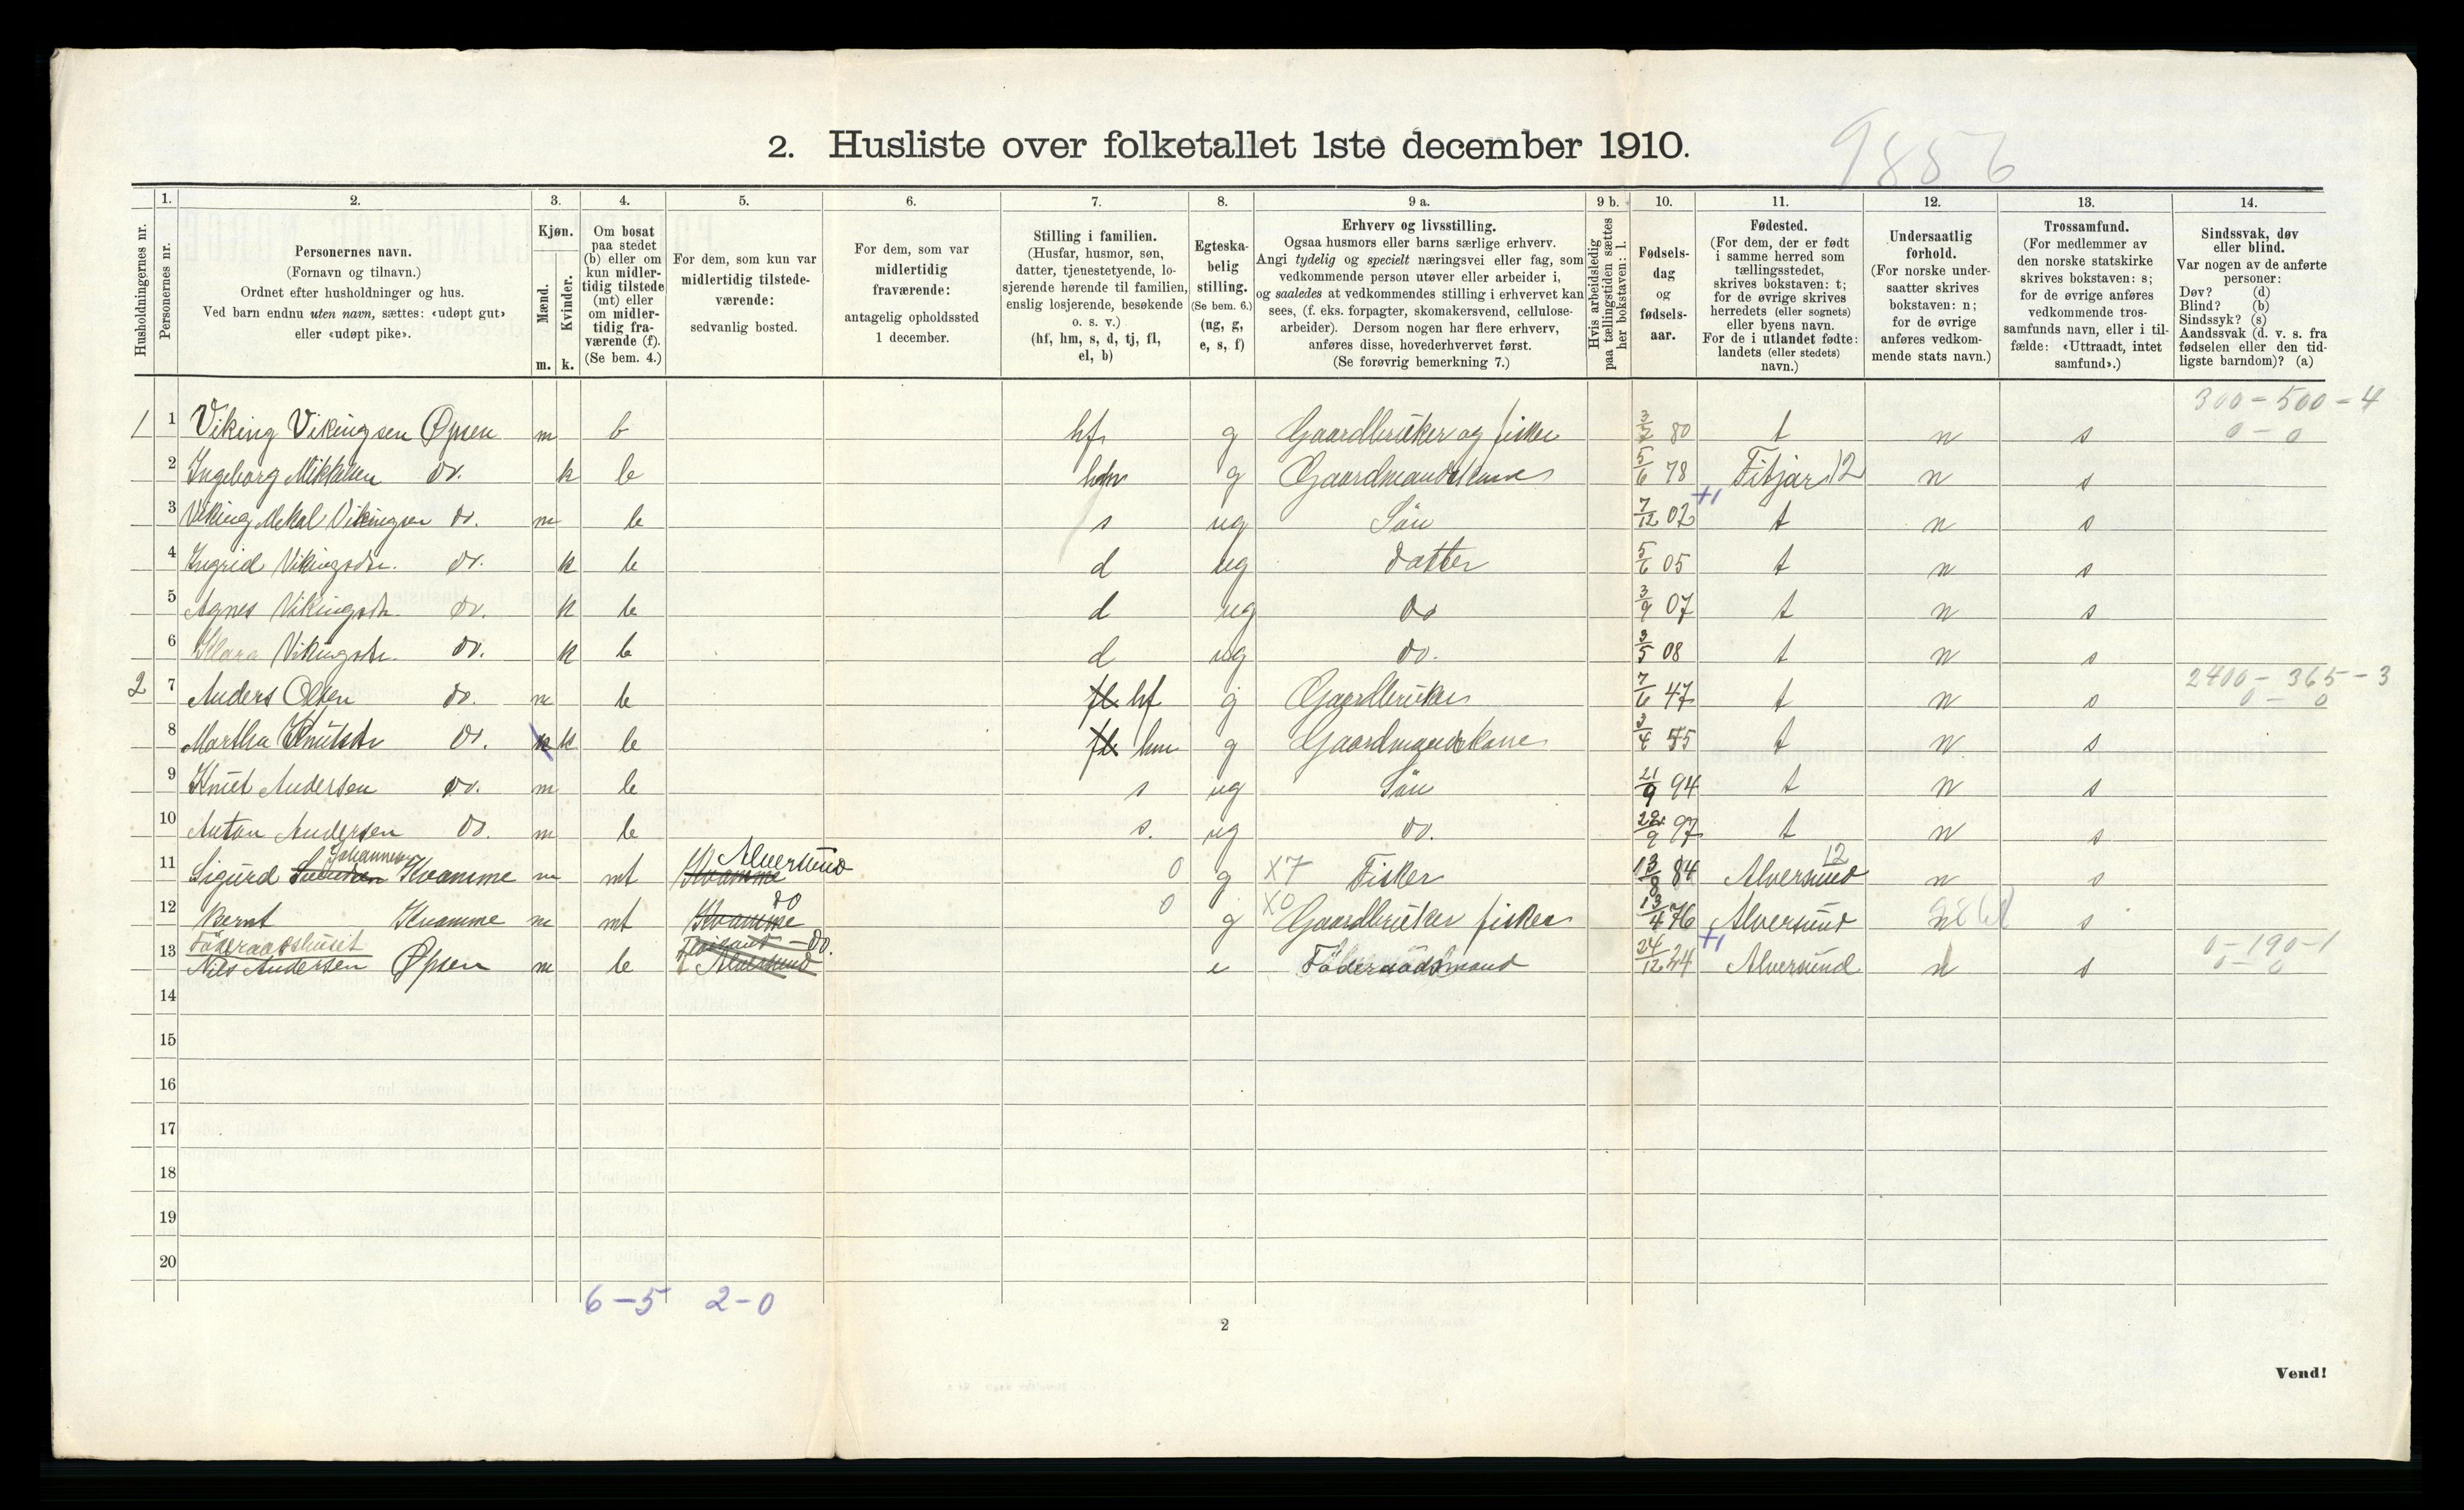 2. Husliste over folketallet 1ste december 1910.
9856
Husholdningernes nr.
1.
Personernes nr.
2.
Personernes navn.
(Fornavn og tilnavn.)
Ordnet efter husholdninger og hus.
Ved barn endnu uten navn, sættes: «udøpt gut»
eller «udøpt pike».
3.
Kjøn.
Mænd.
Kvinder.
m. k.
4.
Om bosat
paa stedet
(b) eller om
kun midler-
tidig tilstede
(mt) eller
om midler-
tidig fra-
værende (f).
(Se bem. 4.)
5.
For dem, som kun var
midlertidig tilstede-
værende:
sedvanlig bosted.
6.
For dem, som var
midlertidig
fraværende:
antagelig opholdssted
1 december.
7.
Stilling i familien.
(Husfar, husmor, søn,
datter, tjenestetyende, lo-
sjerende hørende til familien,
enslig losjerende, besøkende
o. s. v.)
(hf, hm, s, d, tj, fl,
el, b)
8.
Egteska-
belig
stilling.
(Se bem. 6.)
(ug, g,
e, s, f)
9 a.
Erhverv og livsstilling.
Ogsaa husmors eller barns særlige erhverv.
Angi tydelig og specielt næringsvei eller fag, som
vedkommende person utøver eller arbeider i,
og saaledes at vedkommendes stilling i erhvervet kan
sees, (f. eks. forpagter, skomakersvend, cellulose-
arbeider). Dersom nogen har flere erhverv,
anføres disse, hovederhvervet først.
(Se forøvrig bemerkning 7.)
9 b.
Hvis arbeidsledig
paa tællingstiden sættes
her bokstaven: l.
10.
Fødsels-
dag
og
fødsels-
aar.
11.
Fødested.
(For dem, der er født
i samme herred som
tællingsstedet,
skrives bokstaven: t;
for de øvrige skrives
herredets (eller sognets)
eller byens navn.
For de i utlandet fødte:
landets (eller stedets)
navn.)
12.
Undersaatlig
forhold.
(For norske under-
saatter skrives
bokstaven: n;
for de øvrige
anføres vedkom-
mende stats navn.)
13.
Trossamfund.
(For medlemmer av
den norske statskirke
skrives bokstaven: s;
for de øvrige anføres
vedkommende tros-
samfunds navn, eller i til-
fælde: «Uttraadt, intet
samfund».)
14.
Sindssvak, døv
eller blind.
Var nogen av de anførte
personer:
Døv? (d)
Blind? (b)
Sindssyk? (s)
Aandssvak (d. v. s. fra
fødselen eller den tid-
ligste barndom)? (a)
300-500-4
1 1 Viking Vikingsen Øpsen m b hf g Gaardbruker og fisker 3/2 80 t n s 0-0
2 Ingeborg do. k b hm g Gaardmandskone 5/6 78 Fitjar 12 n s
3 Viking Mekal Vikingsen do. m b s ug Søn 7/12 02 +1 t n s
4 Ingrid Vikingsdtr. do. k b d ug Datter 5/6 05 t n s
5 Agnes Vikingsdtr. do. k b d ug do 3/9 07 t n s
6 Klara Vikingsdtr. do. k b d ug do. 3/5 08 t n s
2400-365-3
2 7 Anders Olsen do. m b fl hf g Gaardbruker 7/6 47 t n s 0-0
8 Martha Knutsdtr do. k k b fl hm g Gaardmandskone 3/4 55 t n s
9 Knut Andersen do. m b s ug Søn 21/9 94 t n s
10 Anton Andersen do. m b s. ug do. 9 97 t n s
Johannes Alversund 12
11 Sigurd Kvamme m mt Kvamme 0 g X7 Fisker 13/8 84 Alversund n s
do
12 Bernt Kvamme m mt Kvamme 0 g X0 Gaardbruker fisker 13/4 76 Alversund n s
Føderaadshuset do. +1 0-190-1
13 Nils Andersen Øpsen m b Alversund e Føderaadsmand 24/12 24 Alversund n s 0-0
14
15
16
17
18
19
20
6-5 2-0
2
Vend!